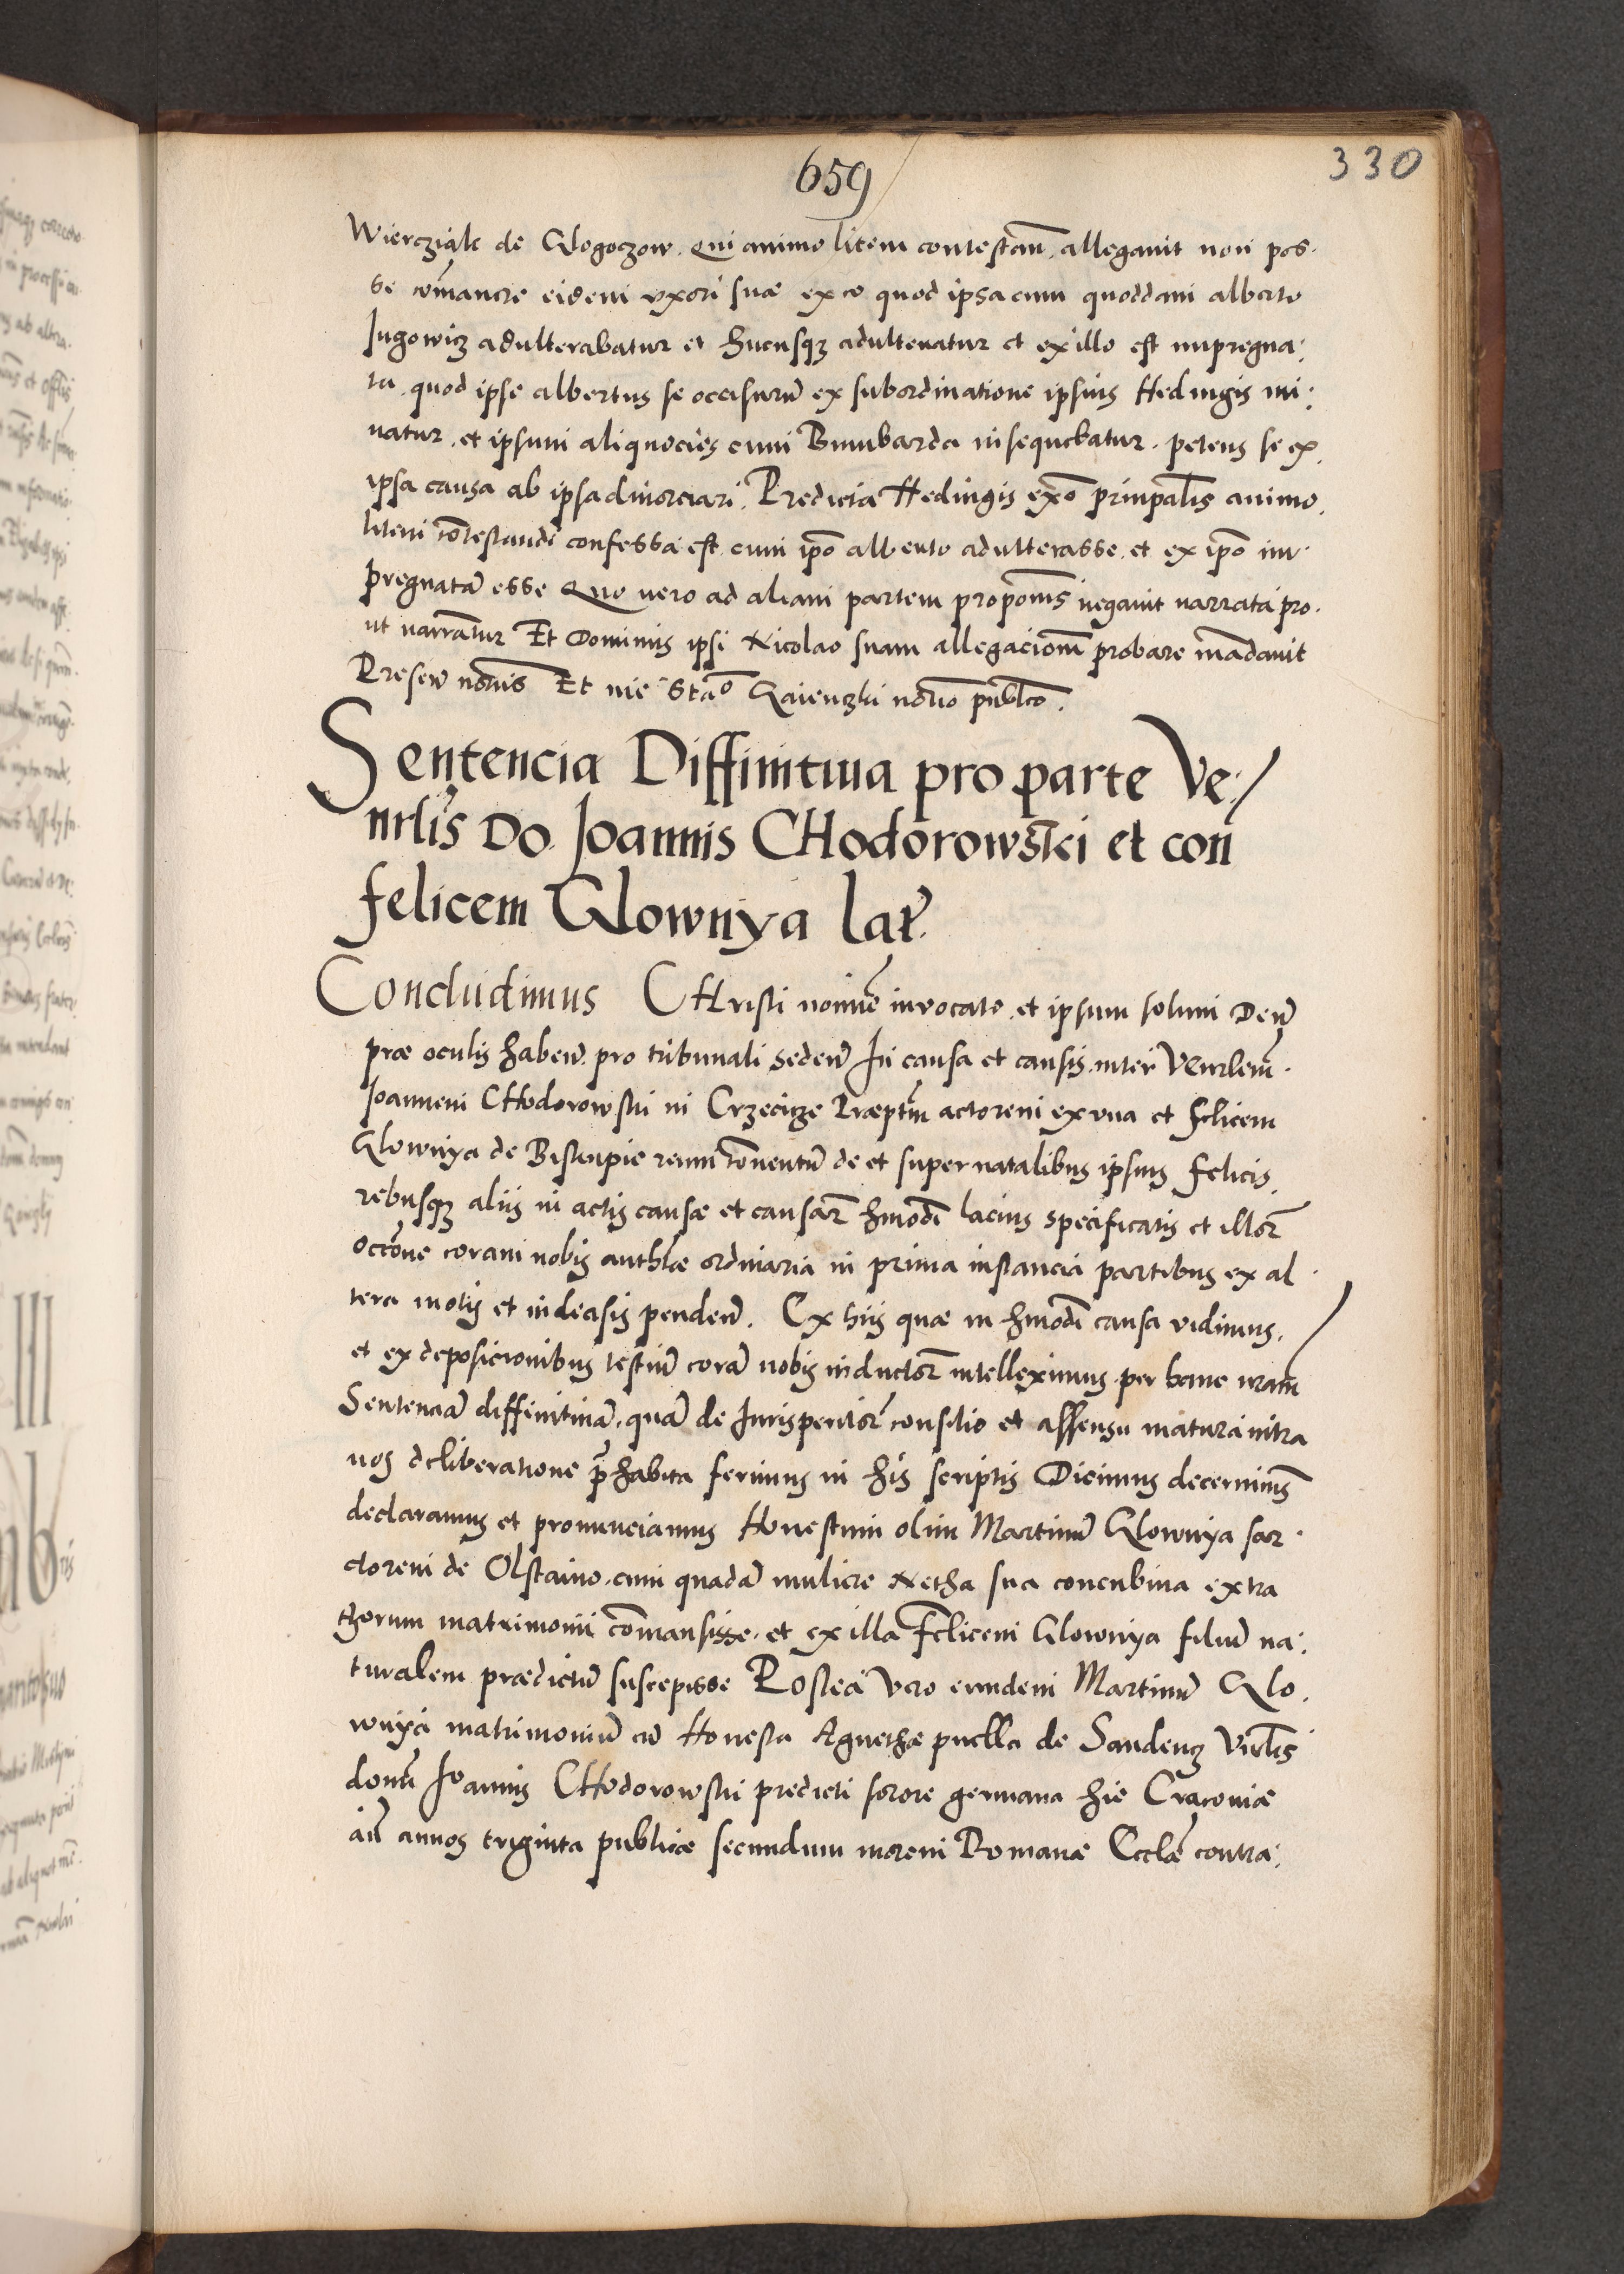 659
330
Wierczialc de Glogoczow. Qui animo litem contestan̄. allegauit non pos·
se com̄anere eidem vxori suæ ex eo quod ipsa cum quoddam alberto
Jugowicz adulterabatur et hucusqꝫ adulteratur et ex illo est impregna:
ta. quod ipse albertus se occisurū ex subordinatione ipsius Hedwigis mi:
natur. et ipsum aliquocies cum Bumbarda insequebatur. petens se ex
ipsa causa ab ipsa diuorciari. Predicta Hedwigis exo͞ prinpal̄is animo
litem cōtestandi confessa est cum ip̄o alberto adulterasse. et ex ip̄o im·
pregnatā esse Quo uero ad aliam partem propōnis negauit narrata pro·
ut narrātur Et Dominus ipsi Nicolao suam allegacionē probare mādauit
Presen̄ notr̄iis Et me Sta͞o Gaienczki notr̄io publ̄co.
Sentencia Diffinitiua pro parte Ve:
nrl̄is Do. Joannis CHodorowski et con
felicem Glownya lat̄.
Concludimus CHristi nomin̄e inuocato. et ipsum solum Deū
præ oculis haben̄. pro tribunali seden̄ In causa et causis inter Venrlem̄.
Joannem CHodorowski in Crzecicze Præptm̄ actorem ex vna et felicem
Glownya de Biskupie reum cōuentū de et super natalibus ipsius felicis.
rebusqꝫ aliis in actis causæ et causar̄ hm̄odi lacius specificatis et illor̄
occōne coram nobis auth̄læ ordinaria in prima instancia partibus ex al·
tera motis et indecisis penden̄. Ex hiis quæ in hm̄odi causa vidimus.
et ex deposicionibus testiū corā nobis inductor̄ intelleximus per hanc nram̄
Sentenciā diffinitiuā. quā de Jurisperitor̄ consilio et assensu matura intra
nos deliberatione p̄habita ferimus in his scriptis Dicimus decernimus
declaramus et pronunciamus Honestum olim Martinū Glownya sar·
ctorem de Olstaino. cum quadā muliere Netha sua concubina extra
thorum matrimonii cōmansisse. et ex illa felicem Glownya filiū na:
turalem prædictū suscepisse Postea Vero eundem Martinū Glo.
wnya matrimoniū cū Honesta Agnethæ puella de Sandencz Vnrl̄is
domī Joannis CHodorowski predicti sorore germana hic Cracouiæ
an̄ annos triginta publicæ secundum morem Romanæ Eccl̄æ contra: